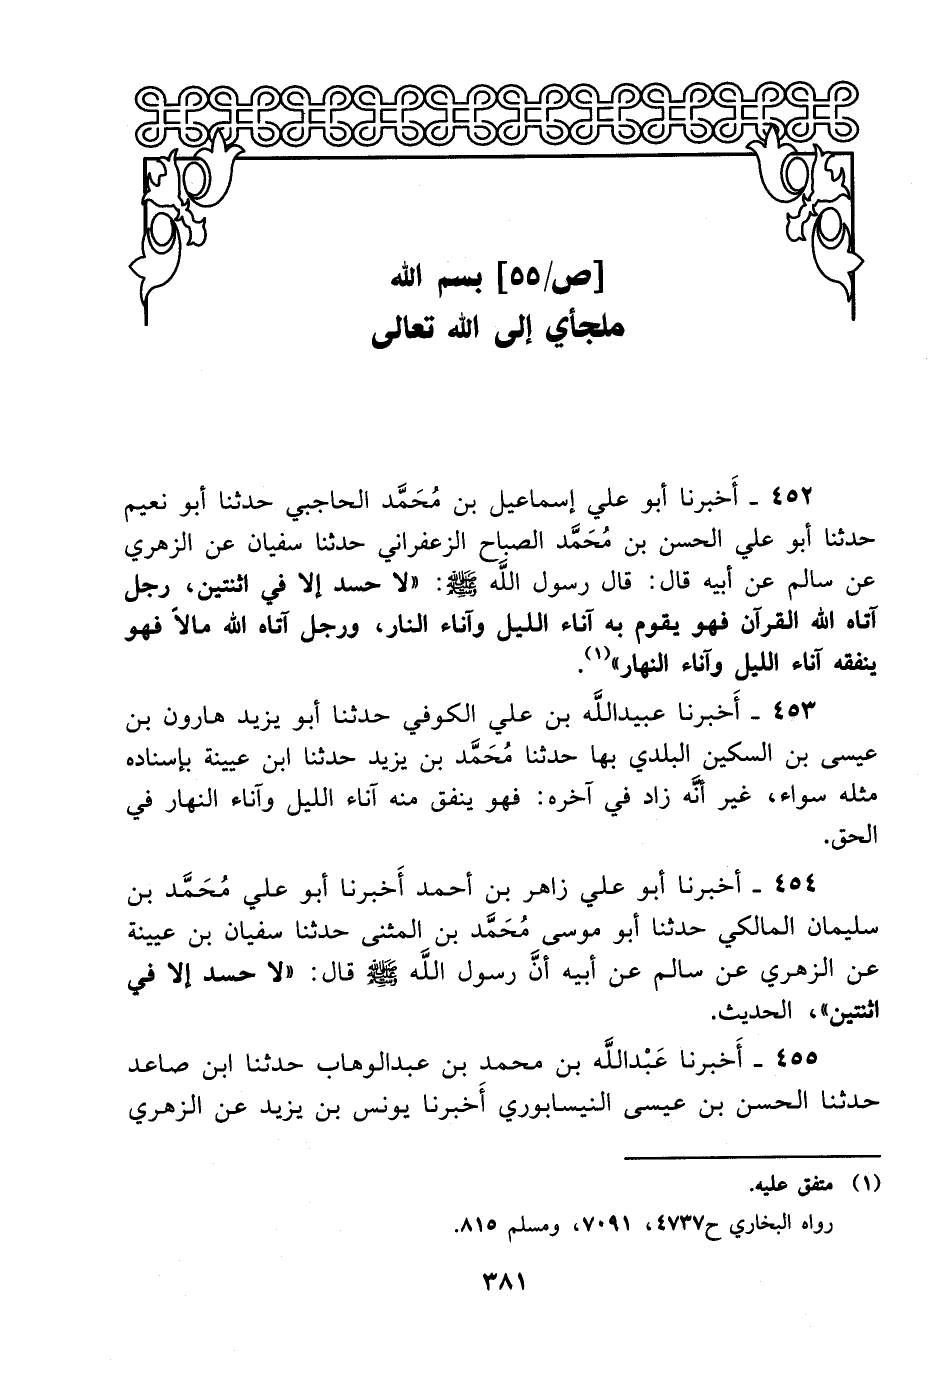 [ص/٥٥] بسم الله
ملجأي إلى الله تعالى
٤٥٢ ـ أَخبرنا أبو علي إسماعيل بن مُحَمَّد الحاجبي حدثنا أبو نعيم
حدثنا أبو علي الحسن بن مُحَمَّد الصباح الزعفراني حدثنا سفيان عن الزهري
عن سالم عن أبيه قال: قال رسول اللَّه ﷺ: «لا حسد إلا في اثنتين، رجل
آتاه الله القرآن فهو يقوم به آناء الليل وآناء النار، ورجل آتاه الله مالاً فهو
ينفقه آناء الليل وآناء النهار»(١).
٤٥٣ ـ أَخبرنا عبيداللَّه بن علي الكوفي حدثنا أبو يزيد هارون بن
عيسى بن السكين البلدي بها حدثنا مُحَمَّد بن يزيد حدثنا ابن عيينة بإسناده
مثله سواء، غير أنَّه زاد في آخره: فهو ينفق منه آناء الليل وآناء النهار في
الحق.
٤٥٤ ـ أخبرنا أبو علي زاهر بن أحمد أَخبرنا أبو علي مُحَمَّد بن
سليمان المالكي حدثنا أبو موسى مُحَمَّد بن المثنى حدثنا سفيان بن عيينة
عن الزهري عن سالم عن أبيه أنَّ رسول اللَّه ﷺ قال: «لا حسد إلا في
اثنتين»، الحديث.
٤٥٥ ـ أَخبرنا عَبْداللَّه بن محمد بن عبدالوهاب حدثنا ابن صاعد
حدثنا الحسن بن عيسى النيسابوري أَخبرنا يونس بن يزيد عن الزهري
(١) متفق عليه.
رواه البخاري ح٤٧٣٧، ٧٠٩١، ومسلم ٨١٥.
٣٨١